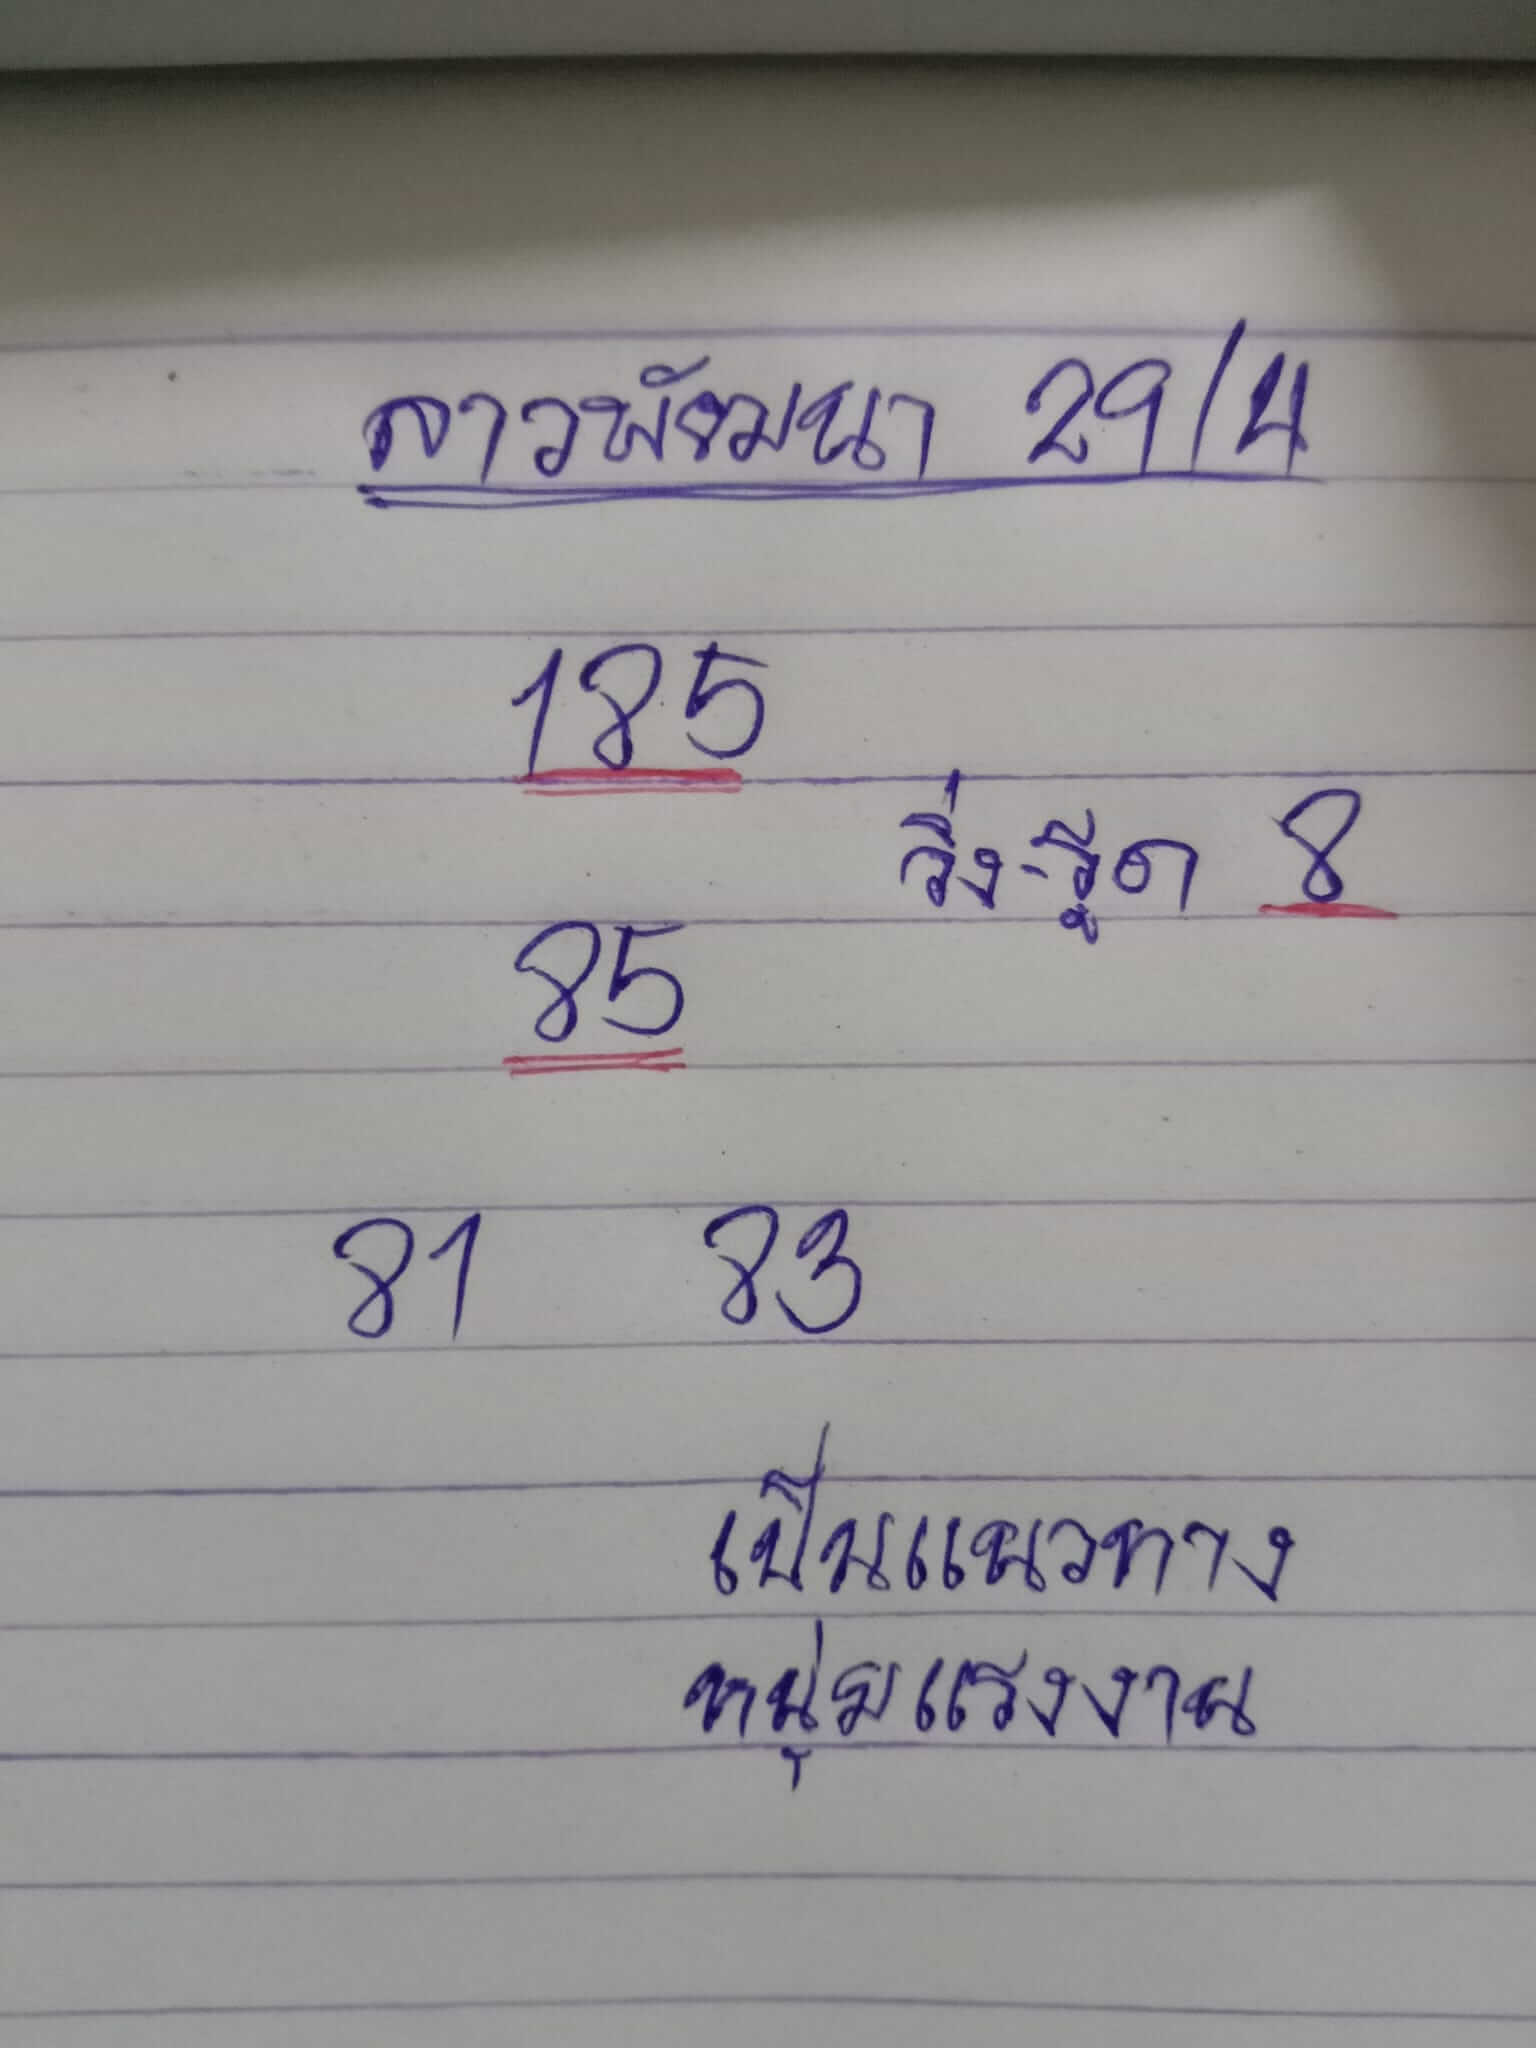 ลาวพัฒนา 29/4
185
วิ่ง-รูด 8
85
81 83
เป็นแนวทาง
หนุ่มแรงงาน